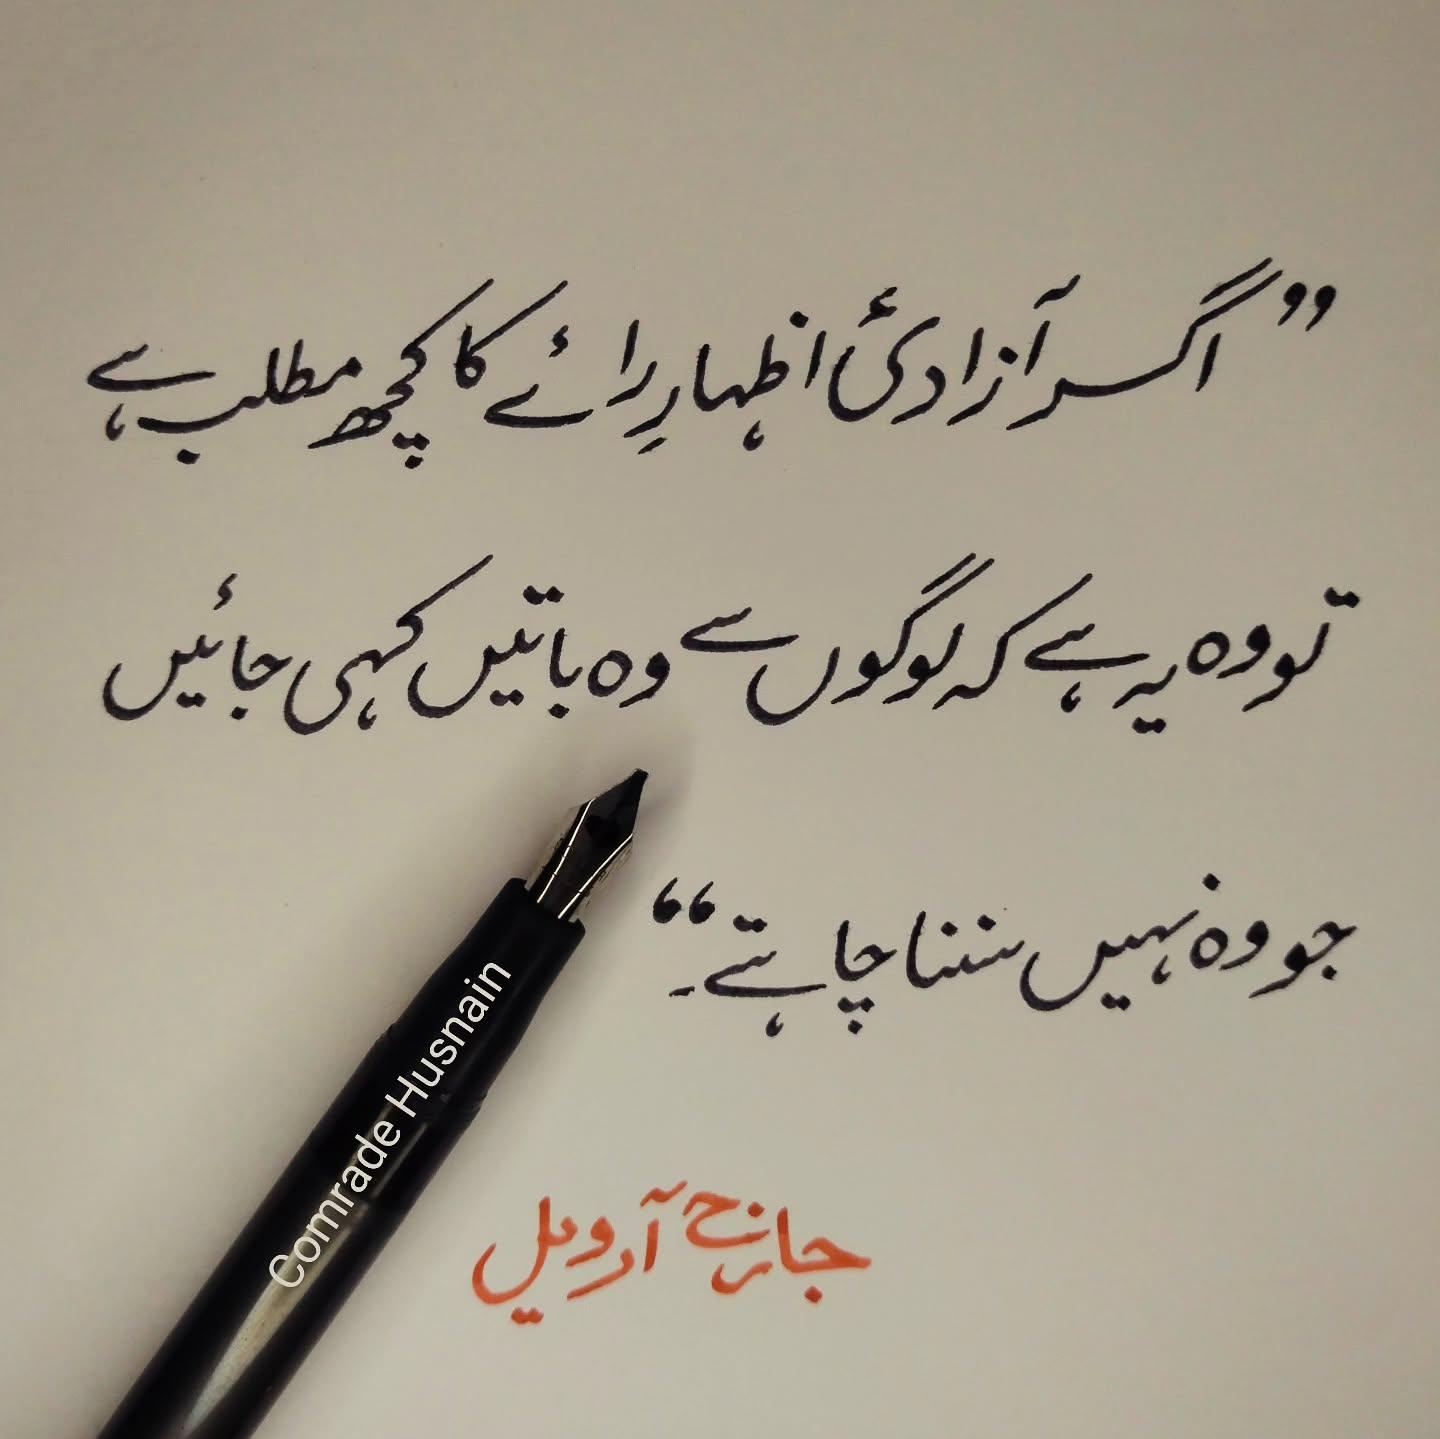 ”اگر آزادیٔ اظہارِ رائے کا کچھ مطلب ہے
تو وہ یہ ہے کہ لوگوں سے وہ باتیں کہی جائیں
جو وہ نہیں سننا چاہتے۔“
Comrade Husnain
جارج آرویل